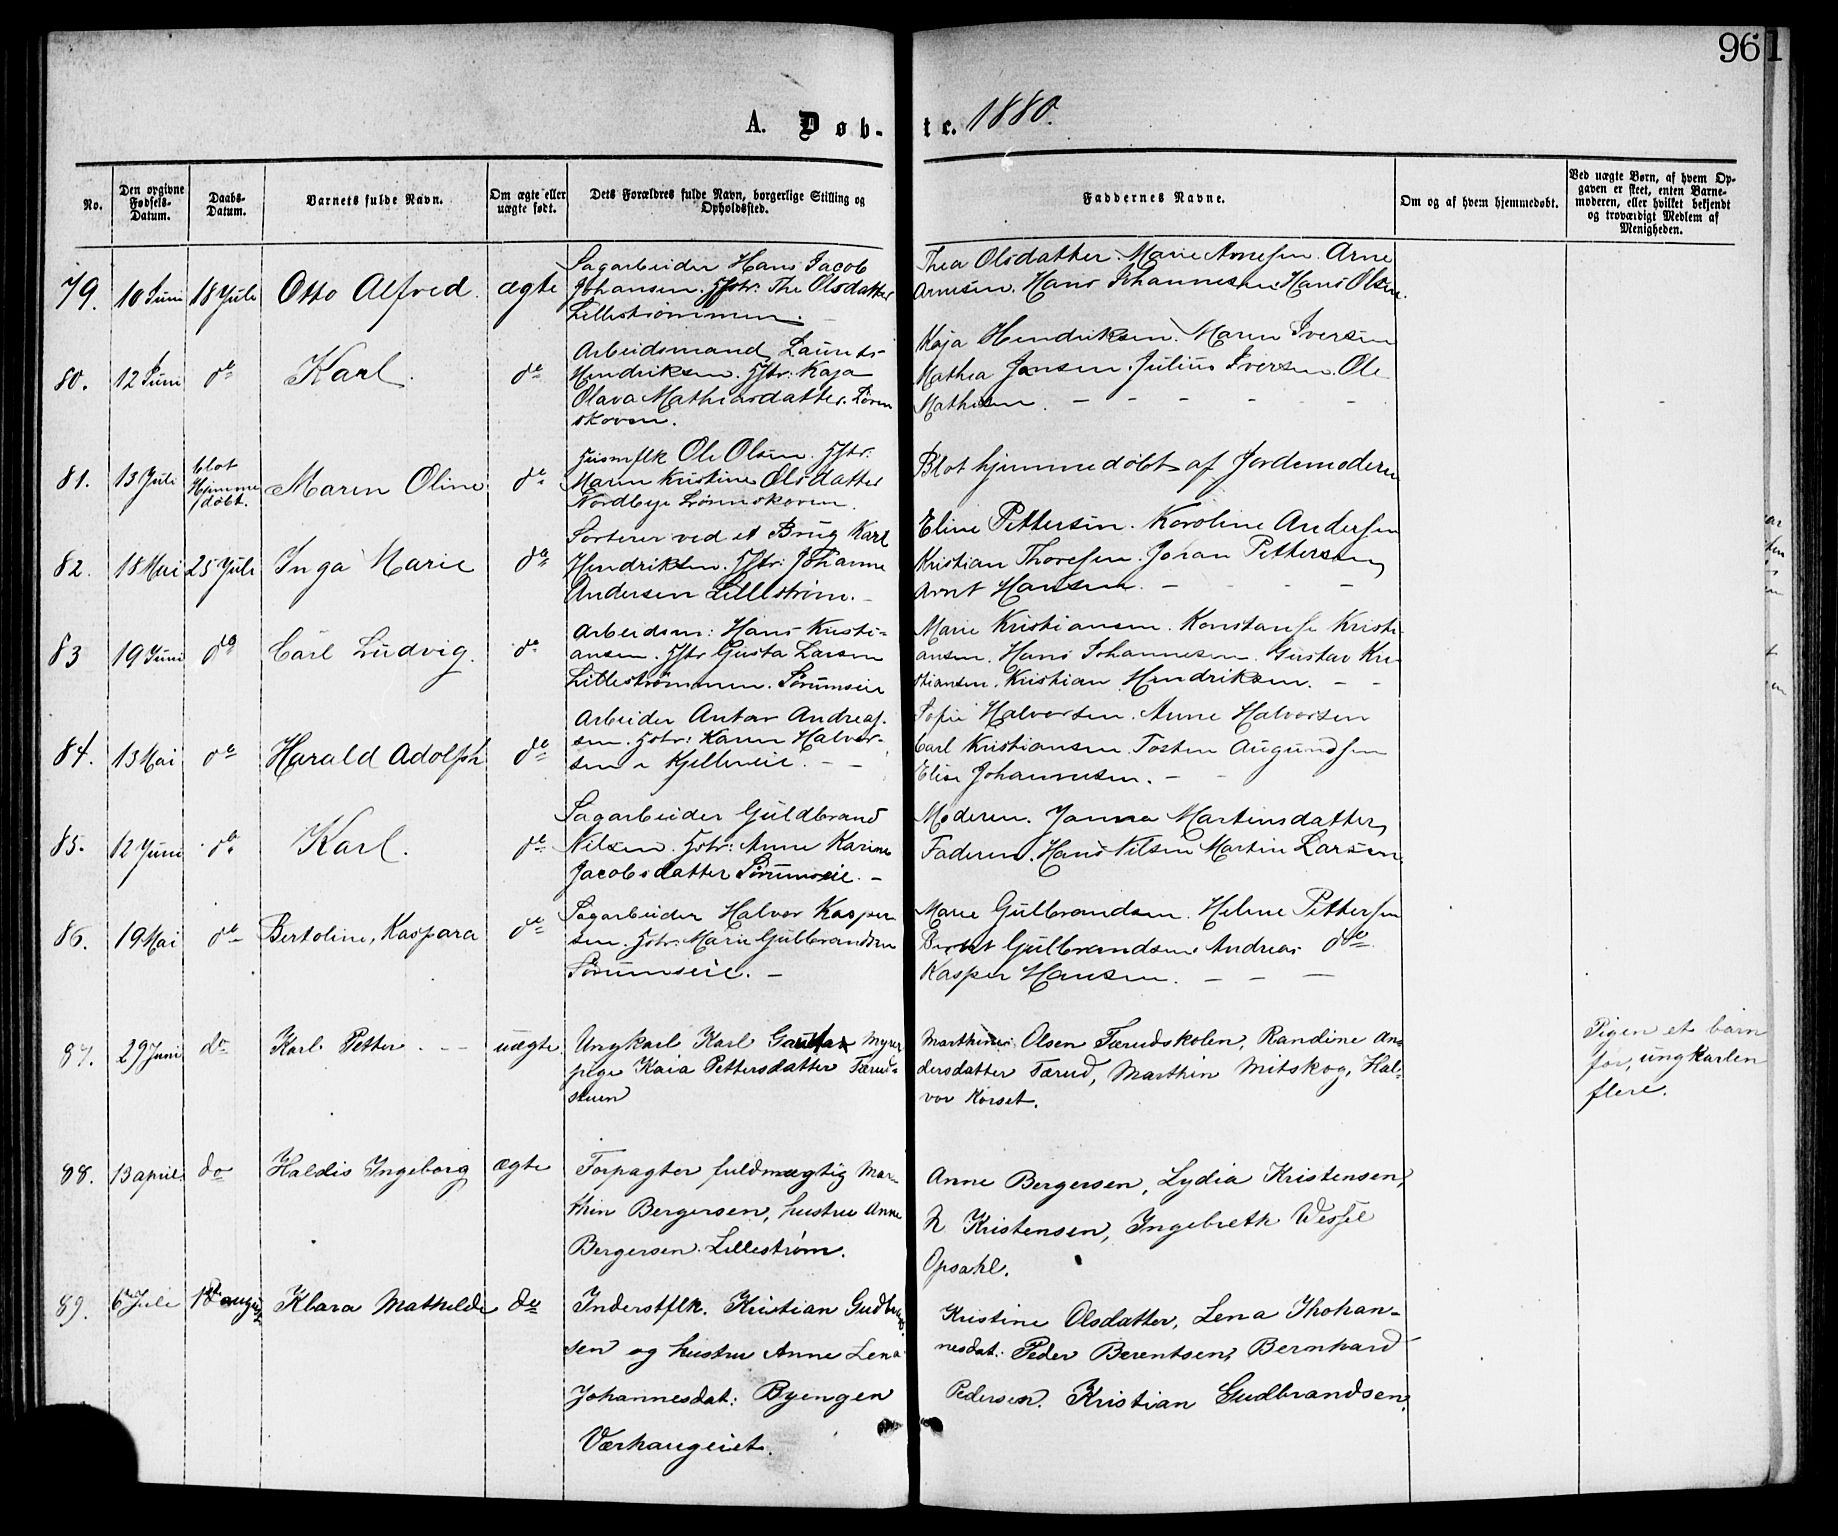 961
A. Døb- te. 1880.
No.
Den opgivne Fødsels-Datum.
Daabs-Datum.
Barnets fulde Navn.
Om ægte eller uægte født.
Dets Forældres fulde Navn, borgerlige Stilling og Opholdssted.
Faddernes Navne.
Om og af hvem hjemmedøbt.
Ved uægte Børn, af hvem Opgaven er skeet, enten Barnemoderen, eller hvilket bekjendt og troværdigt Medlem af Menigheden.
79. 10 Juni 18 Juli Otto Alfred. ægte
Sagarbeider Hans Jacob
Johansen. Hstr: The Olsdatter
Lillestrømmen.
Thea Olsdatter. Marie Arnesen. Arne
Arnesen. Hans Johannesen. Hans Olsen.
80. 12 Juni do Karl. do
Arbeidsmand Laurits
Hendriksen. Hstr: Kaja
Olava Mathiasdatter. Løren
skoven.
Kaja Hendriksen. Maren Iversen
Mathea Jensen. Julius Iversen. Ole
Mathisen. - - - - - -
81. 13 Juli blot Hjemme døbt. Maren Oline do
Huusmflk Ole Olsen. Hstr.
Maren Kristine Olsdatter
Nordbye Lørenskoven.
Blot hjemmedøbt af Jordemoderen
82. 18 Mai 25 Juli Inga Marie do
Sorterer ved et Brug Karl
Hendriksen. Hstr: Johanne
Andersen Lillestrøm. -
Eline Pettersen. Karoline Andersen
Kristian Thoresen. Johan Pettersen
Arnt Hansen. - - -
83 19 Juni do Carl Ludvig. do
Arbeidsm: Hans Kristi-
ansen. Hstr Gusta Larsen
Lillestrømmen. Sørumseie
Marie Kristiansen. Konstanse Kristi-
ansen. Hans Johannesen. Gustav Kri-
stiansen. Kristian Hendriksen. - -
84. 13 Mai do Harald Adolph do
Arbeider Anton Andreas-
sen. Hstr: Karen Halvor-
sen Kjellereie. - -
Sofie Halvorsen. Anne Halvorsen
Carl Kristiansen. Tosten Augundsen
Elise Johannesen. - -
85. 12 Juni do Karl. do
Sagarbeider Guldbrand
Nilsen. Hstr: Anne Karine
Jacobsdatter Sørumseie. -
Moderen. Janna Martinsdatter
Faderen. Hans Nilsen Martin Larsen
86. 19 Mai do Bertoline, Kaspara do
Sagarbeider Halvor Kasper
sen. Hstr. Marie Gulbrandsen
Sørumseie. -
Marie Gulbrandsen. Helene Pettersen
Bernt Gulbrandsen. Andreas do
Kasper Hansen. - - -
87. 29 Juni do Karl Petter. - - uægte.
Ungkarl Karl Gustav Myrer
pige Kaia Pettersdatter Færud-
stuen
Marthinus Olsen Færudskolen, Randine An-
dersdatter Færud, Marthin Mitskog, Hal-
vor Korset.
Pigen et barn
før, ungkarlen
flere.
88. 13 april do Haldis Ingeborg ægte
Forpagter fuldmægtig Mar-
thin Bergersen, hustru Anne
Bergersen. Lillestrøm.
Anne Bergersen, Lydia Kristensen,
N Kristensen, Ingebreth Wessel
Opsahl.
89. 6 Juli 1ste august Klara Mathilde do
Inderstflk. Kristian Gudbrand-
sen og hustru Anne Lena
Johannesdat: Byengen
Værhaugeiet.
Kristine Olsdatter, Lena Johan-
nesdat. Peder Berentsen, Bernhard
Pedersen. Kristian Gudbrandsen.